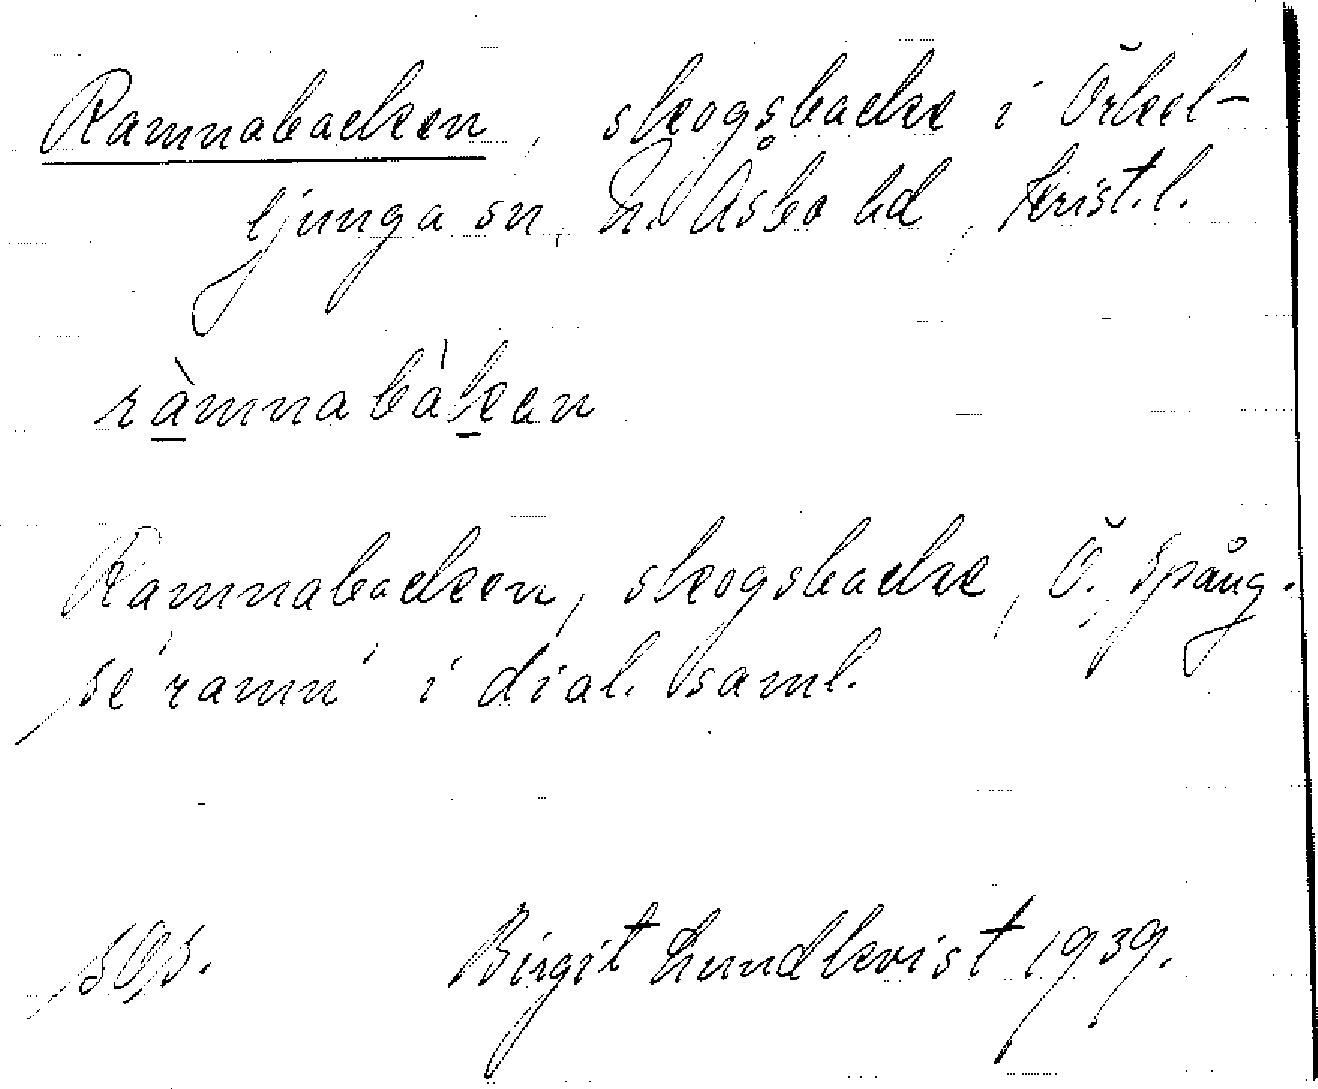 Ramnabacken, skogsbacke i Örkel-
ljunga sn, N. Åsbo hd, Krist.l.
ràmnabàken
Ramnabacken, skogsbacke, Ö. Spång.
se 'ramn' i dial. saml.
Birgit Lundkvist 1939.